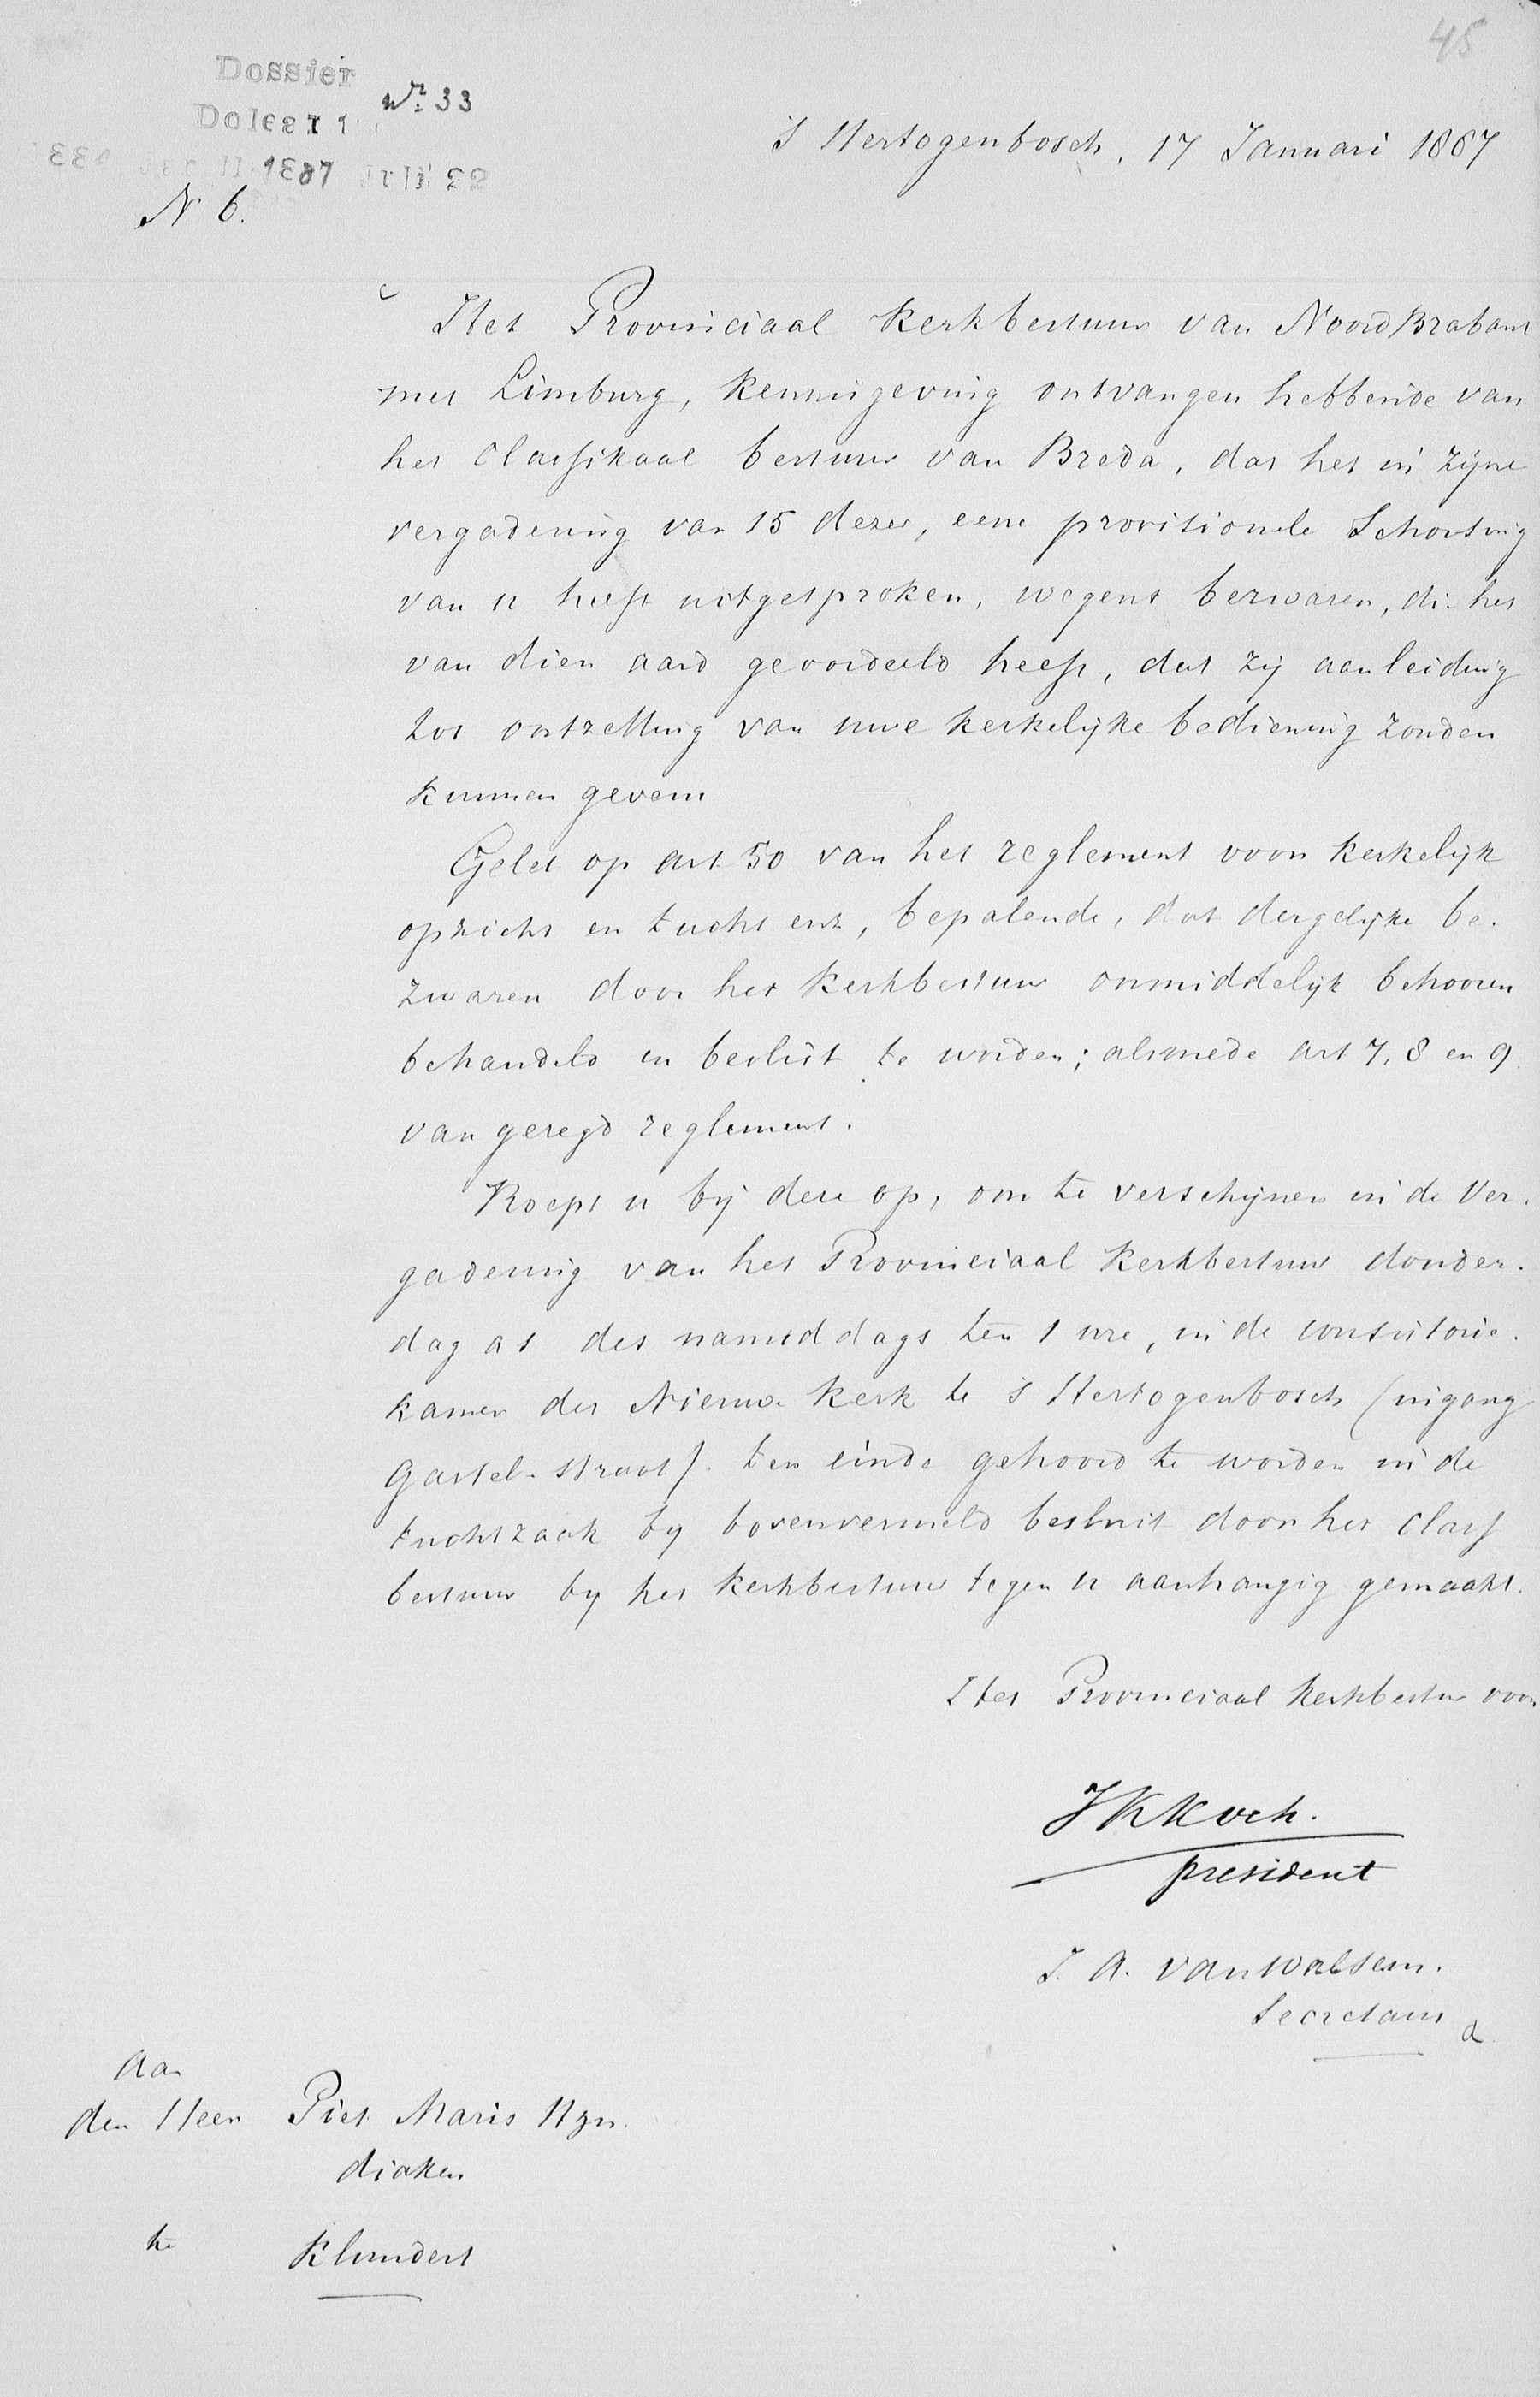 45
Dossier
No 33
's Hertogenbosch, 17 Januari 1887
1887
N 6.
Het Provinciaal Kerkbestuur van Noord Brabant
met Limburg, Kennisgeving ontvangen hebbende van
het Classikaal bestuur van Breda, dat het in zijne
vergadering van 15 dezer, eene provisionele schorsing
van u heeft uitgesproken, wegens bezwaren, die het
van dien aard geoordeeld heeft, dat zij aanleiding
tot ontzetting van uwe kerkelijke bediening zouden
kunnen geven
Gelet op art 50 van het reglement voor kerkelijk
opzicht en tucht enz, bepalende, dat dergelijke be-
zwaren door het Kerkbestuur onmiddelijk behooren
behandeld en beslist te worden; alsmede art 7, 8 en 9
van gezegd reglement.
Roept u bij deze op, om te verschijnen in de Ver-
gadering van het Provinciaal Kerkbestuur donder-
dag as des namiddags ten 1 ure, in de consistorie-
kamer der Nieuwe Kerk te 's Hertogenbosch (ingang
Gastel-straat). ten einde gehoord te worden in de
tuchtzaak by bovenvermeld besluit door het Class
bestuur by het Kerkbestuur tegen u aanhangig gemaakt.
Het Provinciaal Kerkbestuur voorn
JK Koch.
president
J. A. van Walsem.
Secretaris
Aan
den Heer Piet Maris Hzn.
diaken
te Klundert